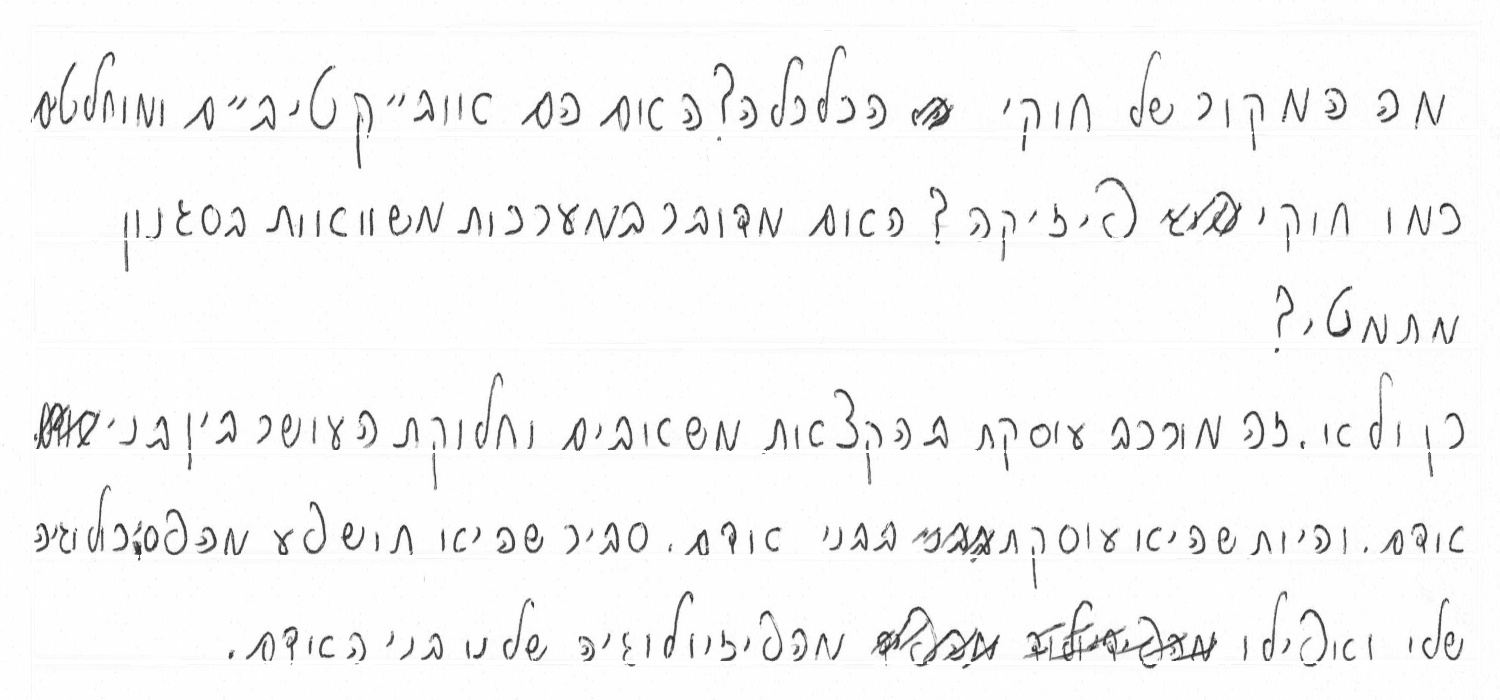 מה המקור של חוקי הכלכלה? האום הם אווב״קטיב״ם ומוחלטים
כמו חוקי פיזיקה? האום מדובר במערכות משוואוות בסגנון
מתמטי?
כן ולא. זה מורכב עוסקת בהקצאות משאובים וחלוקת העושר בין בני
אודם. והיות שהיא עוסקת בבני אודם. סביר שהיא תושפע מהפסיכולוגיה
שלו ואפילו מהפיזיולוגיה שלנו בני האודם.